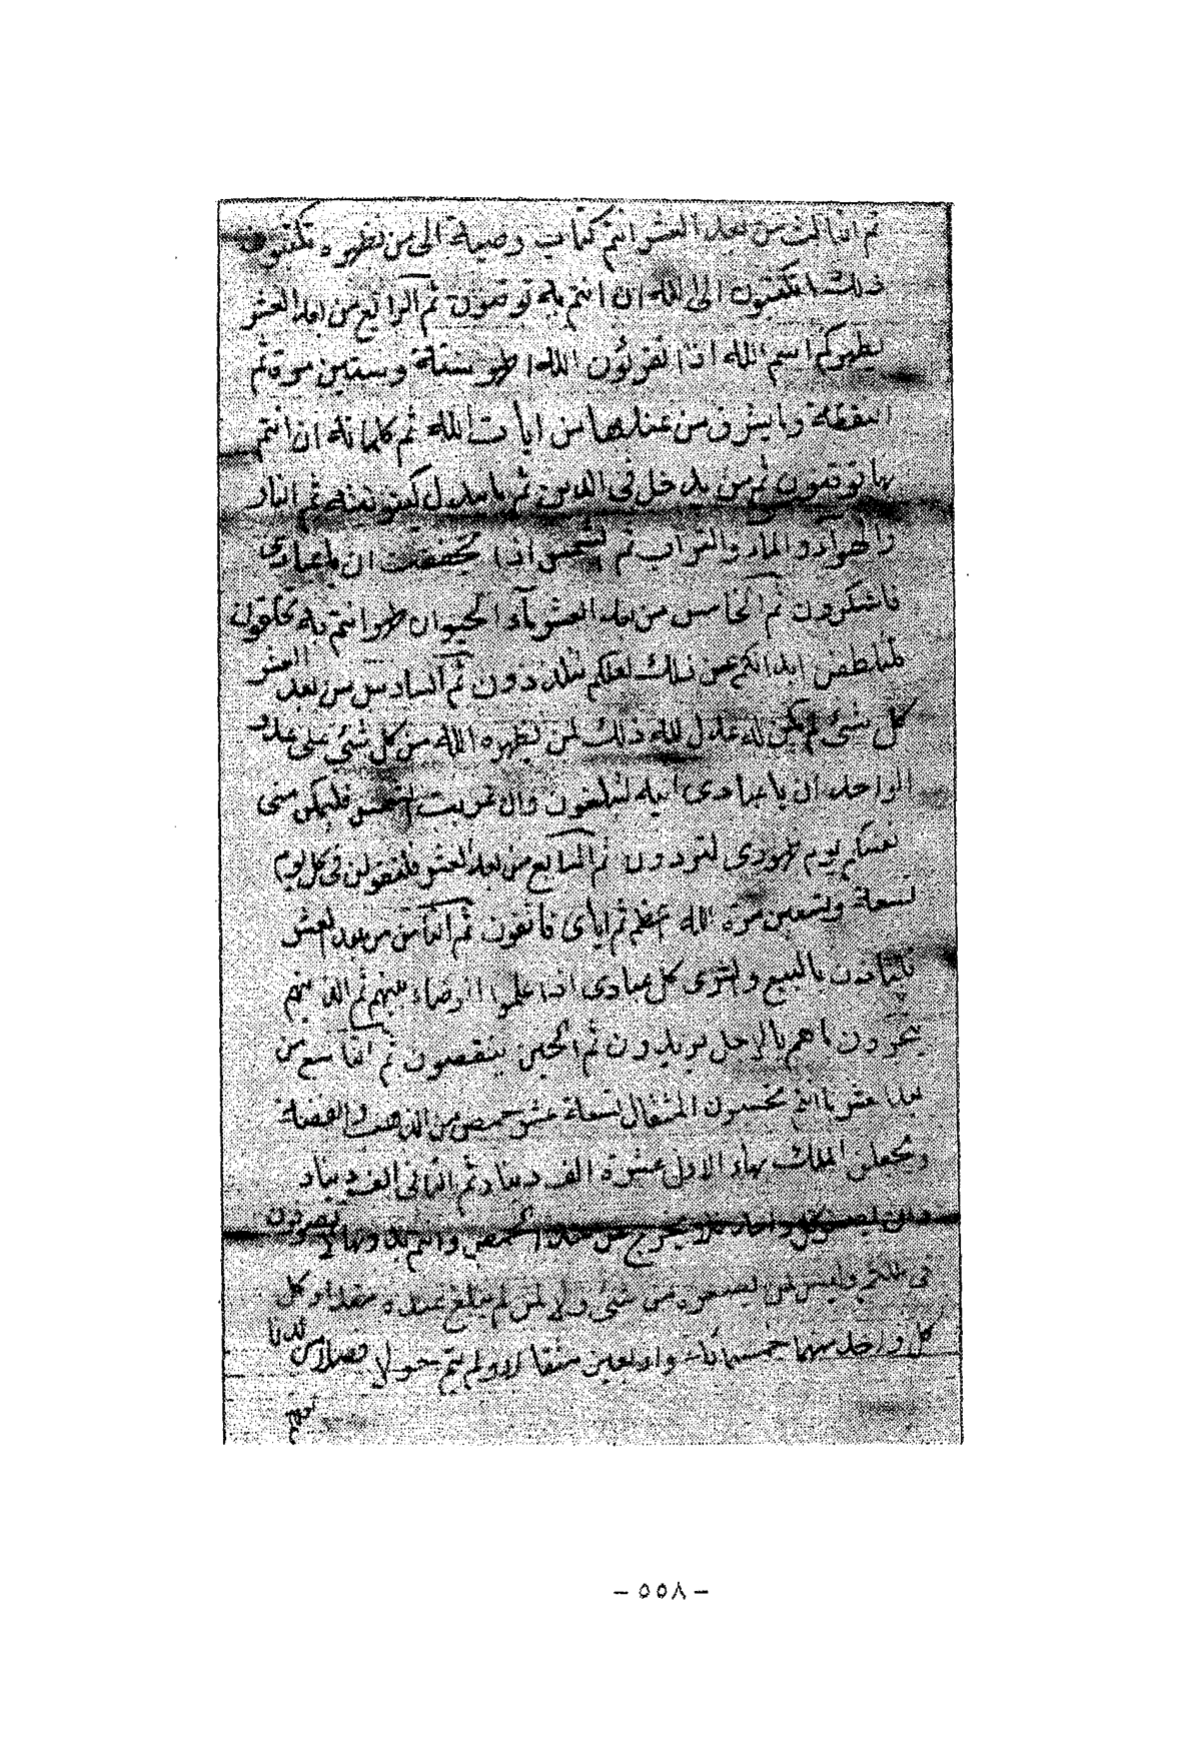 ثم الثالث من بعد العشر انتم كتاب وصية الى من نظهره تكتبون
ذلك لتكتبون الى الله ان انتم به توقنون ثم الرابع من بعد العشر
يطهركم اسم الله اذا تقرئون الله اطهر ستة وستين مرة ثم
النقطة وما يشرق من عندها من ايات الله ثم كلماته ان انتم
بها توقنون ثم من يدخل في الدين ثم ما يبدل كينونيته ثم النار
والهواء والماء والتراب ثم الشمس اذا تجففت ان يا عبادى
فاشكرون ثم الخامس من بعد العشر ماء الحيوان طهر وانتم به تخلقون
لتلطفن ابدانكم عن ذلك لعلكم تتلذذون ثم السادس من بعد العشر
كل شئ لم يكن له عدل لله ذلك لمن نظهره الله من كل شئ على عدد
الواحد ان يا عبادى اليه لتبلغون وان غربت الشمس فليملكن منى
نفسكم يوم ظهورى لتردون ثم السابع من بعد العشر فلتقولن في كل يوم
تسعة وتسعين مرة الله اعظم ثم اياى فاتقون ثم الثامن من بعد العشر
بالبيع والشرى كل عبادى اذا علموا الرضاء بينهم ثم الذينهم
يتجرون ما هم بالاجل يريدون ثم الحين ينقصون ثم التاسع من
بعد العشر ما انتم تحسبون المثقال تسعة عشر حمص من الذهب والفضة
وتجعلن الملك بهاء الاول عشرة الف دينار ثم الثانى الف دينار
كل واحد فلا يخرج عن حد الحمص وانتم
في ملكتم وليس لمن من شئ ولا لمن لم يبلغ عنده مقدار كل
كل واحد منهما خمسمائة واربعين مثقالا ولم يتم حولا فضلا من لدنا